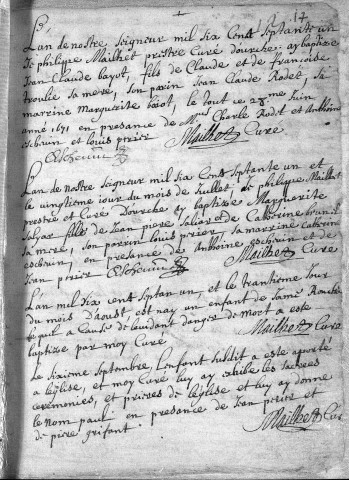 14
Lan de nostre seigneur mil six cent septante un
Je philippe Mailhet prestre Curé dourche, ay baptize
Jean Claude bayot, fils de Claude et de francoise
sa mere, son parin Jean Claude Rodet, sa
marrine Marguerite baiot, le tout ce 28me Juin
anne 1671 en presance de Mre Charle Rodet et Anthoine
escbrun et louis prier
Mailhet Cure
Lan de nostre seigneur mil six cent septante un et
le vingtieme jour du mois de Jullet, Je philippe Mailhet
prestre et Cure Dourche ay baptize Marguerite
Salyar fille de Jean piere Saliar et de Catherine
sa mere, son parrin louis prier, sa marrine Catherine
escbrun, en presance de Anthoine escbrun et de
Jean prier
Mailhet Cure
Lan mil six cent septan un et le trantieme Jour
du mois daoust, est nay un enfant de Same
lequil a Cause de leuidant danger de mort a este
baptize par moy Cure
Mailhet Cure
Le sixieme septembre, lenfant subdit a este aporté
a leglise, et moy Curé luy ay exhibe les sacrees
ceremonies, et prieres de leglise et luy ay donne
le nom paul en presance de Jean prier et
de piere grifant
Mailhet Cur